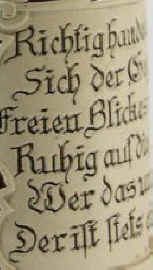 Richtig han
Sich der G
Freien Blicke
Ruhig auf d
Wer das
Der ist stets